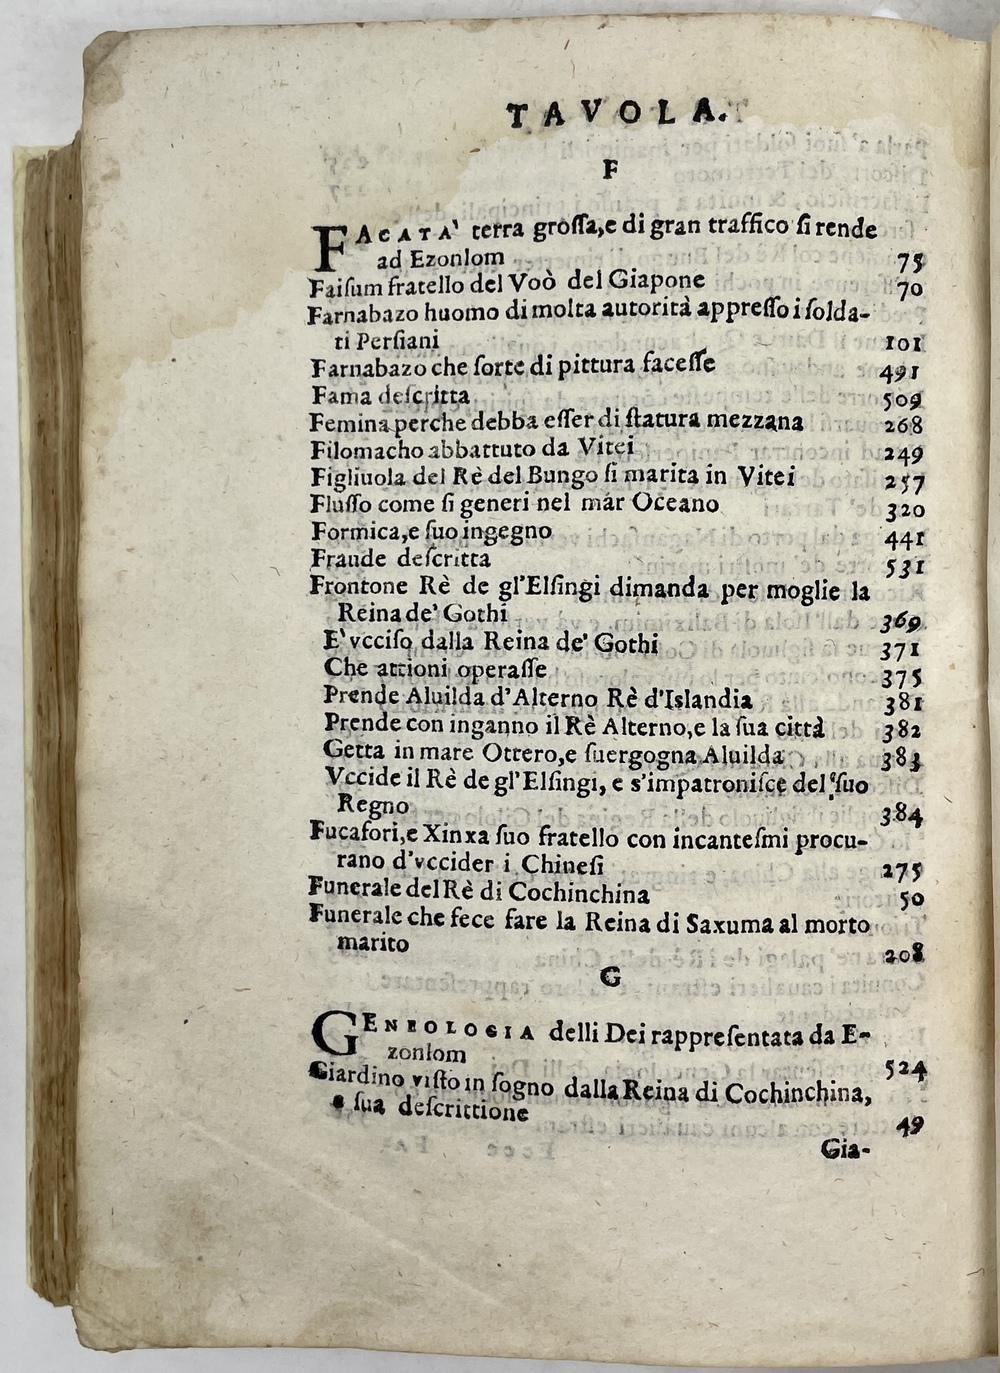 TAVOLA.
F
FACATA' terra groſſa,e di gran traffico ſi rende
ad Ezonlom 75
Faiſum fratello del Voò del Giapone 70
Farnabazo huomo di molta autorità appreſſo i ſolda-
ti Perſiani 101
Farnabazo che ſorte di pittura faceſſe 491
Fama deſcritta 509
Femina perche debba eſſer di ſtatura mezzana 268
Filomacho abbattuto da Vitei 249
Figliuola del Rè del Bungo ſi marita in Vitei 257
Fluſſo come ſi generi nel már Oceano 320
Formica,e ſuo ingegno 441
Fraude deſcritta 531
Frontone Rè de gl'Elſingi dimanda per moglie la
Reina de' Gothi 369
E' vcciſo dalla Reina de' Gothi 371
Che attioni operaſſe 375
Prende Aluilda d'Alterno Rè d'Islandia 381
Prende con inganno il Rè Alterno,e la ſua città 382
Getta in mare Ottero,e ſuergogna Aluilda 383
Vccide il Rè de gl'Elſingi, e s'impatroniſce del ſuo
Regno 384
Fucafori,e Xinxa ſuo fratello con incanteſmi procu-
rano d'vccider i Chineſi 275
Funerale del Rè di Cochinchina 50
Funerale che fece fare la Reina di Saxuma al morto
marito 208
G
GENEOLOGIA delli Dei rappreſentata da E-
zonlom 524
Giardino viſto in ſogno dalla Reina di Cochinchina,
e ſua deſcrittione 49
Gia-